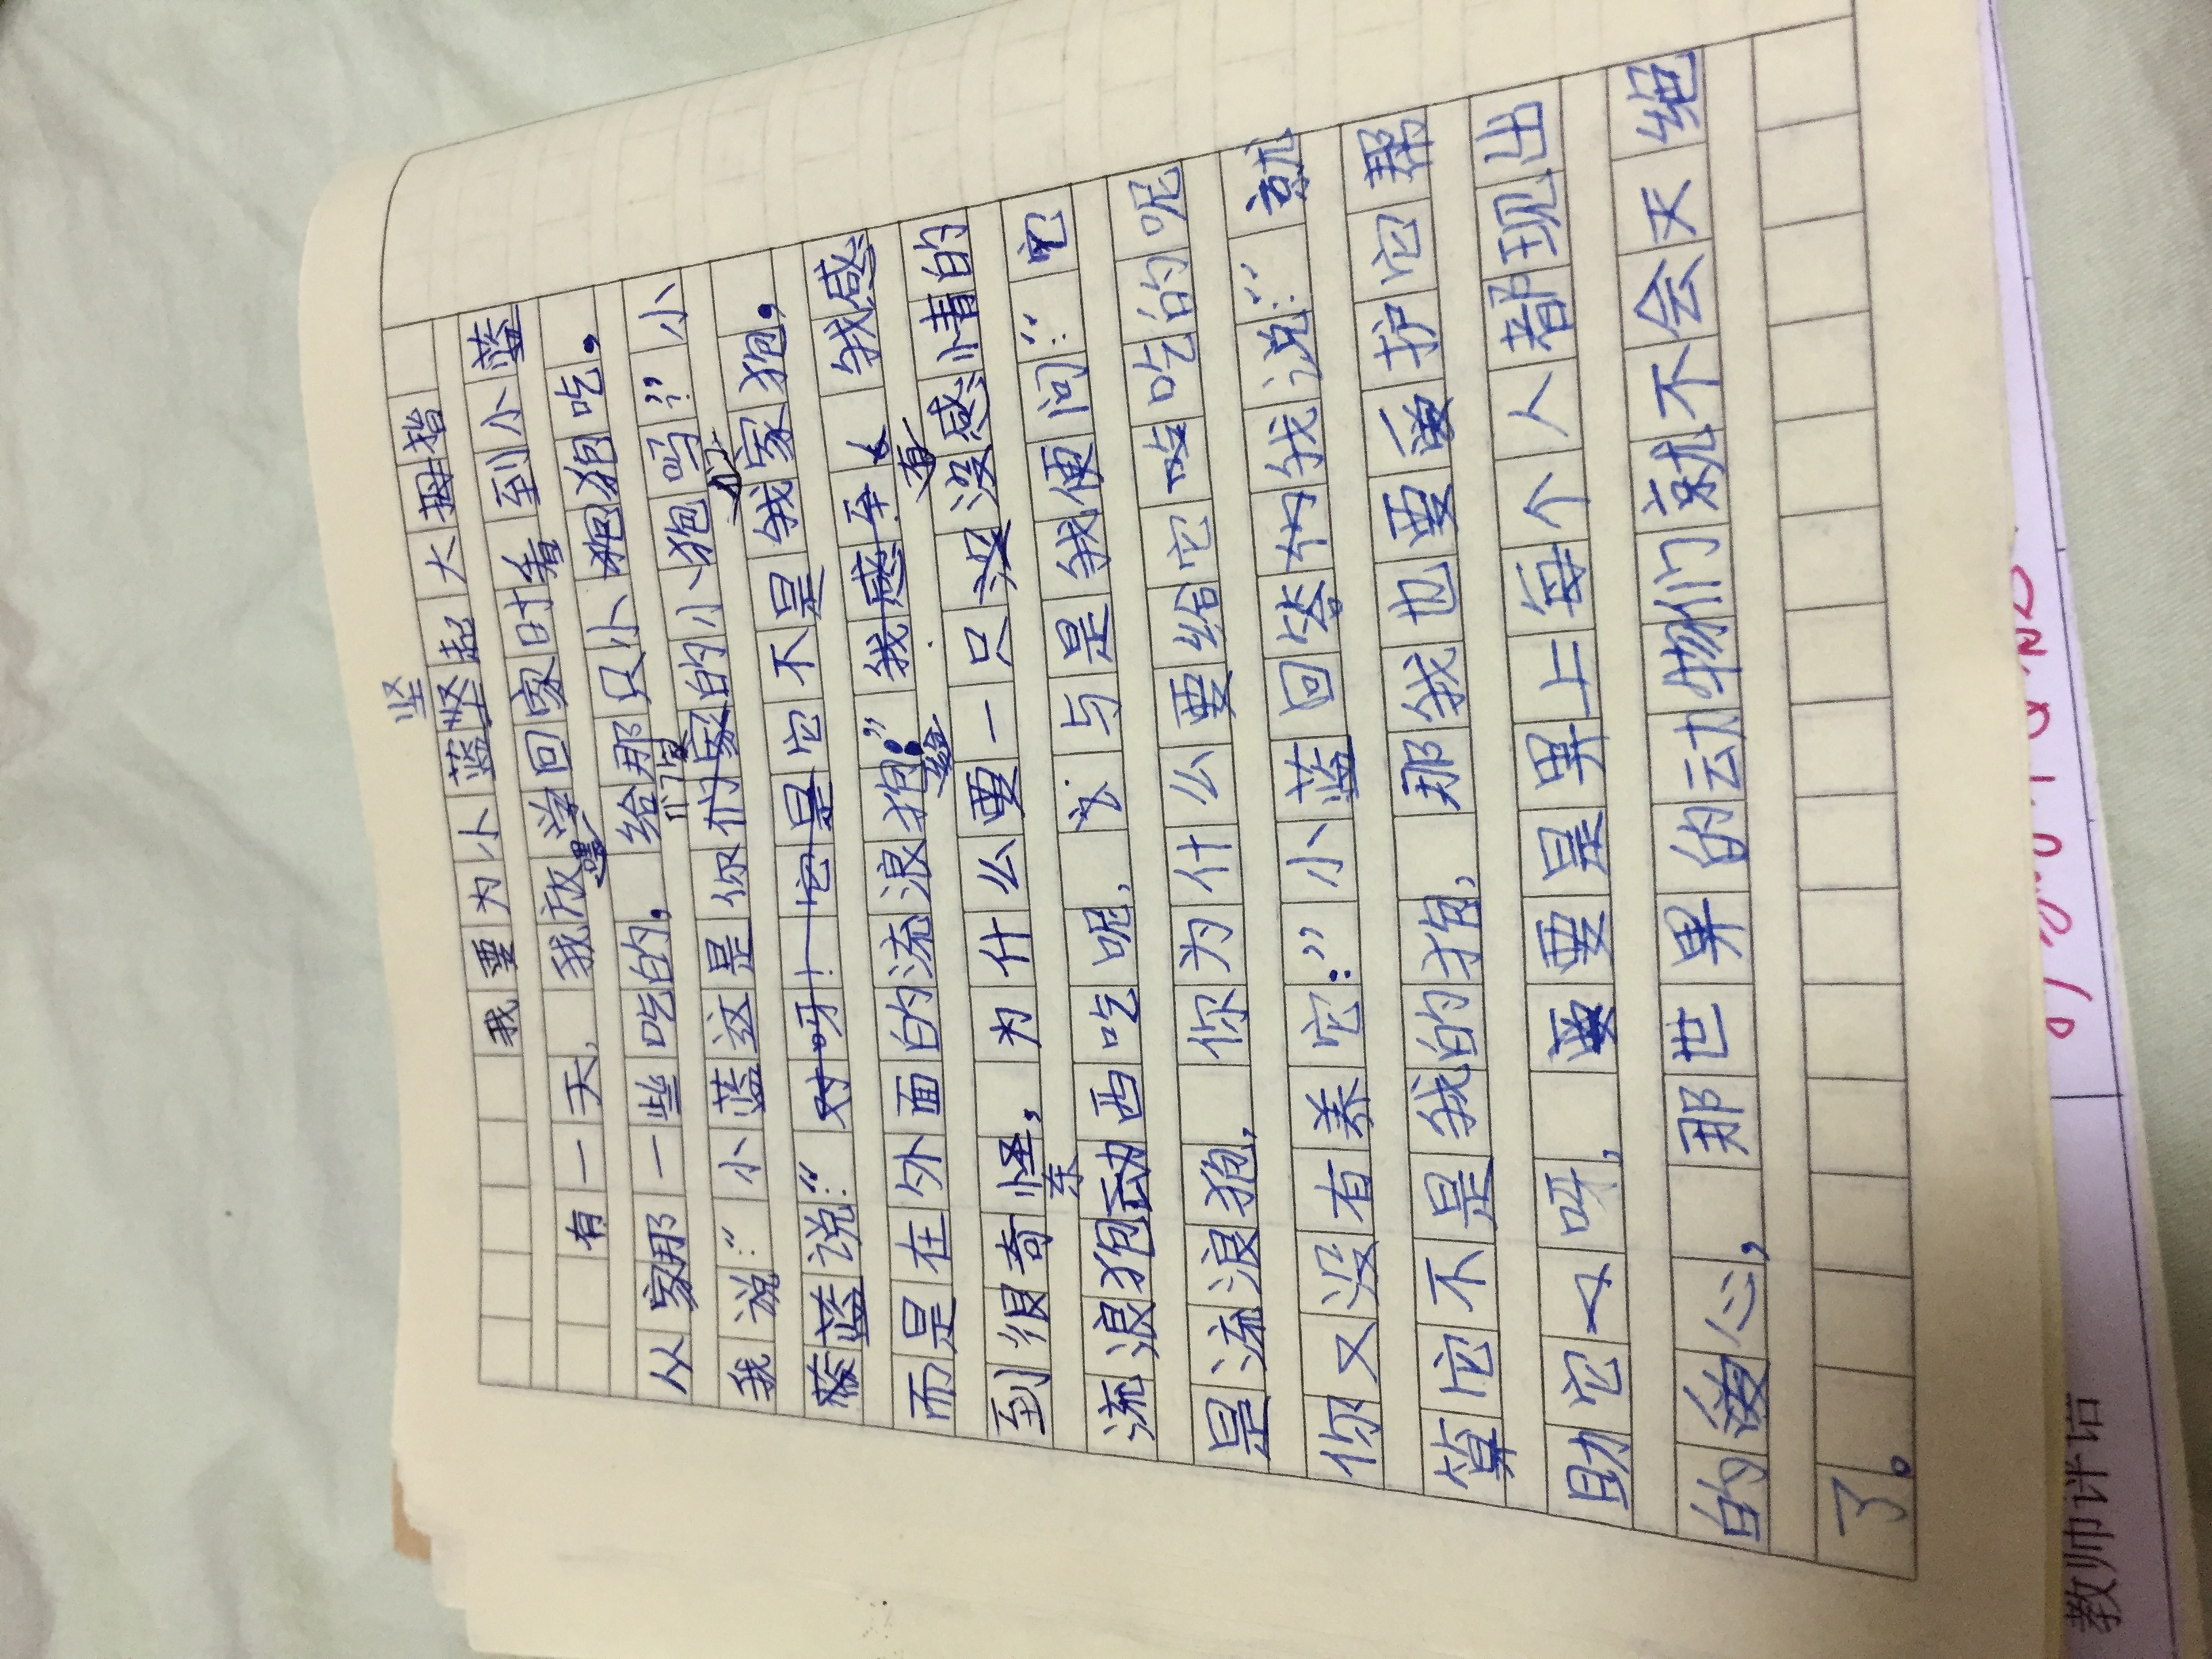 坚
我要为小蓝坚起大拇指
有一天，我放学回家时看到小蓝
嘿
从家那一些吃的，给那只小狗狗吃，
们家
我说：“小蓝这是你们家的小狗吗？”小
们
蓝说：“对呀！它是它不是我家狗，
而是在外面的流浪狗。”我感 我感
给 有
到很奇怪，为什么要一只没没感情的
东
流浪狗动西吃呢，与是我便问：“它
是流浪狗，你为什么要给它吃的呢
你又没有养它。”小蓝回答我说：“就
算它不是我的狗，那我也要爱护它帮
助它呀，要要是界上每个人都现出
的爱心，那世界的动物们就不会灭绝
了。
教师评语